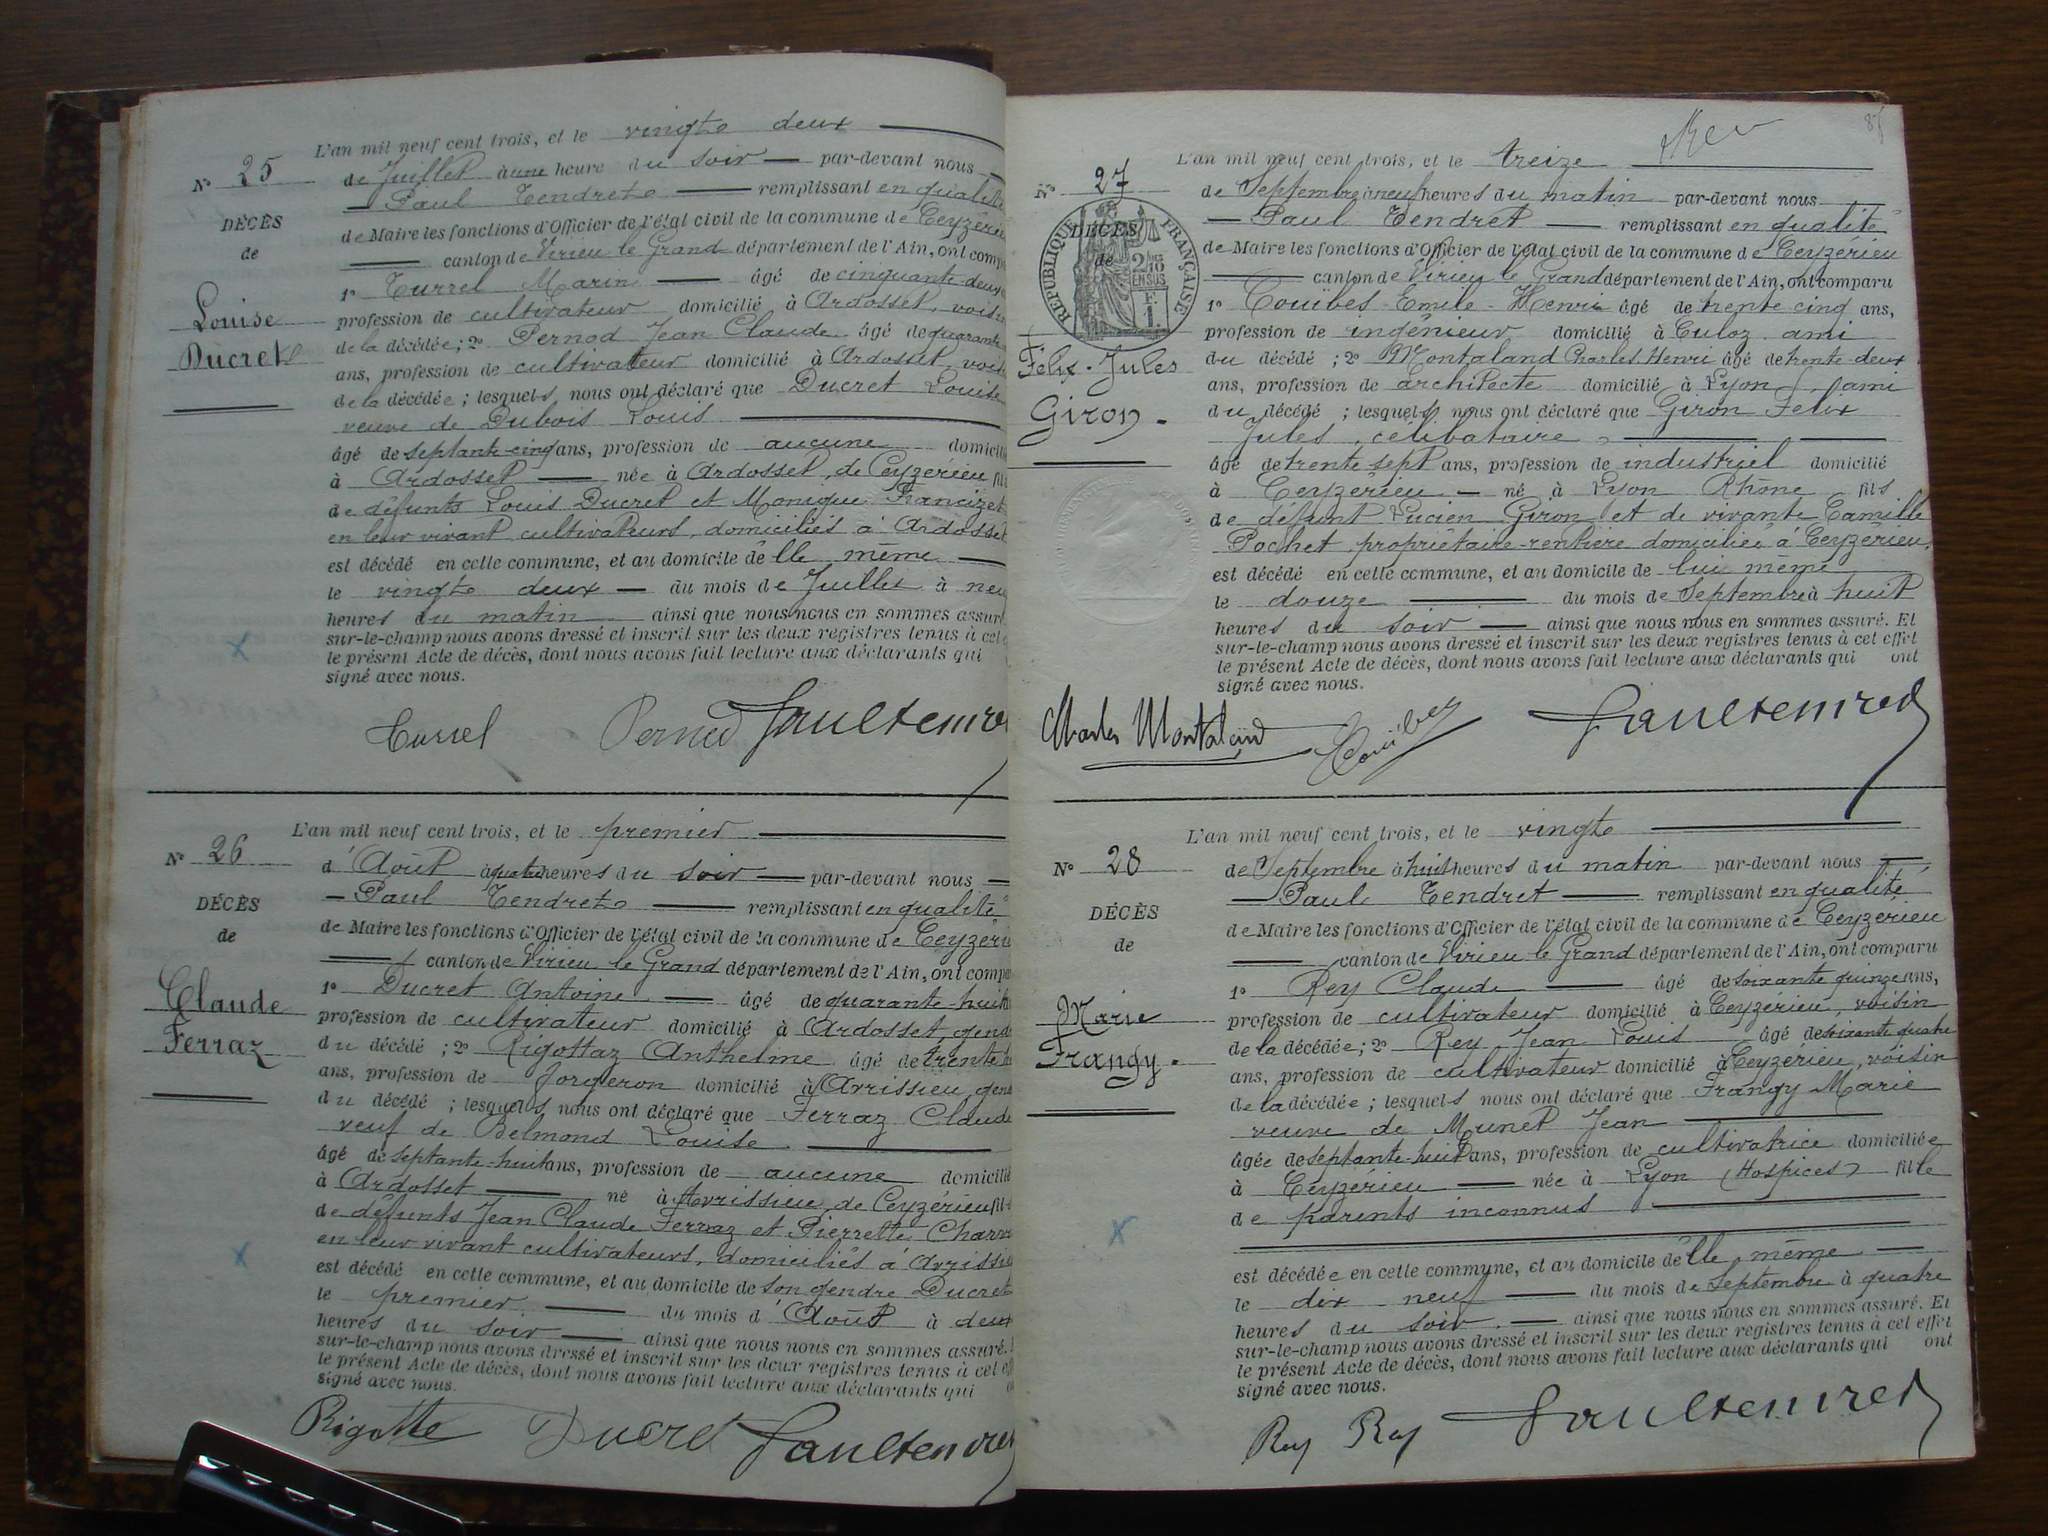 L'an mil neuf cent trois, et le vingt deux
N° 25
de Juillet à une heure du soir par-devant nous
Paul Tendret remplissant en qualité
DÉCÈS
de Maire les fonctions d'Officier de l'état civil de la commune de Ceyzérieu
de
canton de Virieu le Grand département de l'Ain, ont comp
1° Turrel Marin âgé de cinquante-deux
Louise
profession de cultivateur domicilié à Ardosset, voisin
Ducret
de la décédée; 2° Pernod Jean Claude âgé de quarante
ans, profession de cultivateur domicilié à Ardosset, voisin
de la décédée; lesquels nous ont déclaré que Ducret Louise
veuve de Dubois Louis
âgé de septante-cinq ans, profession de aucune domicilié
à Ardosset née à Ardosset, de Ceyzérieu fil
de défunts Louis Ducret et Monique Francizet
en leur vivant cultivateurs, domiciliés à Ardosset
est décédé en cette commune, et au domicile d'elle même
le vingt deux du mois de Juillet à neuf
heures du matin ainsi que nous nous en sommes assuré
sur-le-champ nous avons dressé et inscrit sur les deux registres tenus à cet
le présent Acte de décès, dont nous avons fait lecture aux déclarants qui
signé avec nous.
Turrel Pernod Paul Tendret
L'an mil neuf cent trois, et le premier
N° 26
d'Août à quatre heures du soir par-devant nous
Paul Tendret remplissant en qualité
DÉCÈS
de Maire les fonctions d'Officier de l'état civil de la commune de Ceyzérieu
de
canton de Virieu le Grand département de l'Ain, ont comp
Claude
1° Ducret Antoine âgé de quarante-huit
Ferraz
profession de cultivateur domicilié à Ardosset, gendre
du décédé; 2° Rigottaz Anthelme âgé de trente
ans, profession de forgeron domicilié à Avrissieu, gendre
du décédé; lesquels nous ont déclaré que Ferraz Claude
veuf de Belmond Louise
âgé de septante-huit ans, profession de aucune domicilié
à Ardosset né à Avrissieu, de Ceyzérieu fils
de défunts Jean Claude Ferraz et Pierrette
en leur vivant cultivateurs, domiciliés à Avrissieu
est décédé en cette commune, et au domicile de son gendre Ducret
le premier du mois d'Août à deux
heures du soir ainsi que nous nous en sommes assuré.
sur-le-champ nous avons dressé et inscrit sur les deux registres tenus à cet
le présent Acte de décès, dont nous avons fait lecture aux déclarants qui
signé avec nous.
Rigotte Ducret Paul Tendret
L'an mil neuf cent trois, et le treize
N° 27
de Septembre à neuf heures du matin par-devant nous
Paul Tendret remplissant en qualité
DÉCÈS
de Maire les fonctions d'Officier de l'état civil de la commune de Ceyzérieu
de
RÉPUBLIQUE FRANÇAISE
2/10 EN SUS
canton de Virieu le Grand département de l'Ain, ont comparu
1° Couïbes Emile-Henri âgé de trente cinq ans,
profession de ingénieur domicilié à Culoz, ami
Félix-Jules
du décédé; 2° Montaland Charles Henri âgé de trente-deux
ans, profession de architecte domicilié à Lyon, ami
Giron.
du décédé; lesquels nous ont déclaré que Giron Félix
Jules, célibataire,
âgé de trente sept ans, profession de industriel domicilié
à Ceyzérieu né à Lyon Rhône fils
de défunt Lucien Giron et de vivante Camille
Pochet, propriétaire-rentière domiciliée à Ceyzérieu,
est décédé en cette commune, et au domicile de lui même
le douze du mois de Septembre à huit
heures du soir ainsi que nous nous en sommes assuré. Et
sur-le-champ nous avons dressé et inscrit sur les deux registres tenus à cet effet
le présent Acte de décès, dont nous avons fait lecture aux déclarants qui ont
signé avec nous.
Charles Montaland Couïbes Paul Tendret
L'an mil neuf cent trois, et le vingt
N° 28
de Septembre à huit heures du matin par-devant nous
Paul Tendret remplissant en qualité
DÉCÈS
de Maire les fonctions d'Officier de l'état civil de la commune de Ceyzérieu
de
canton de Virieu le Grand département de l'Ain, ont comparu
1° Rey Claude âgé de soixante quinze ans,
Marie
profession de cultivateur domicilié à Ceyzérieu, voisin
Frangy.
de la décédée; 2° Rey Jean Louis âgé de soixante quatre
ans, profession de cultivateur domicilié à Ceyzérieu, voisin
de la décédée; lesquels nous ont déclaré que Frangy Marie
veuve de Munet Jean
âgée de septante-huit ans, profession de cultivatrice domiciliée
à Ceyzérieu née à Lyon (Hospices) fille
de parents inconnus
est décédée en cette commune, et au domicile d'elle même
le dix neuf du mois de Septembre à quatre
heures du soir. ainsi que nous nous en sommes assuré. Et
sur-le-champ nous avons dressé et inscrit sur les deux registres tenus à cet effet
le présent Acte de décès, dont nous avons fait lecture aux déclarants qui ont
signé avec nous.
Rey Rey Paul Tendret